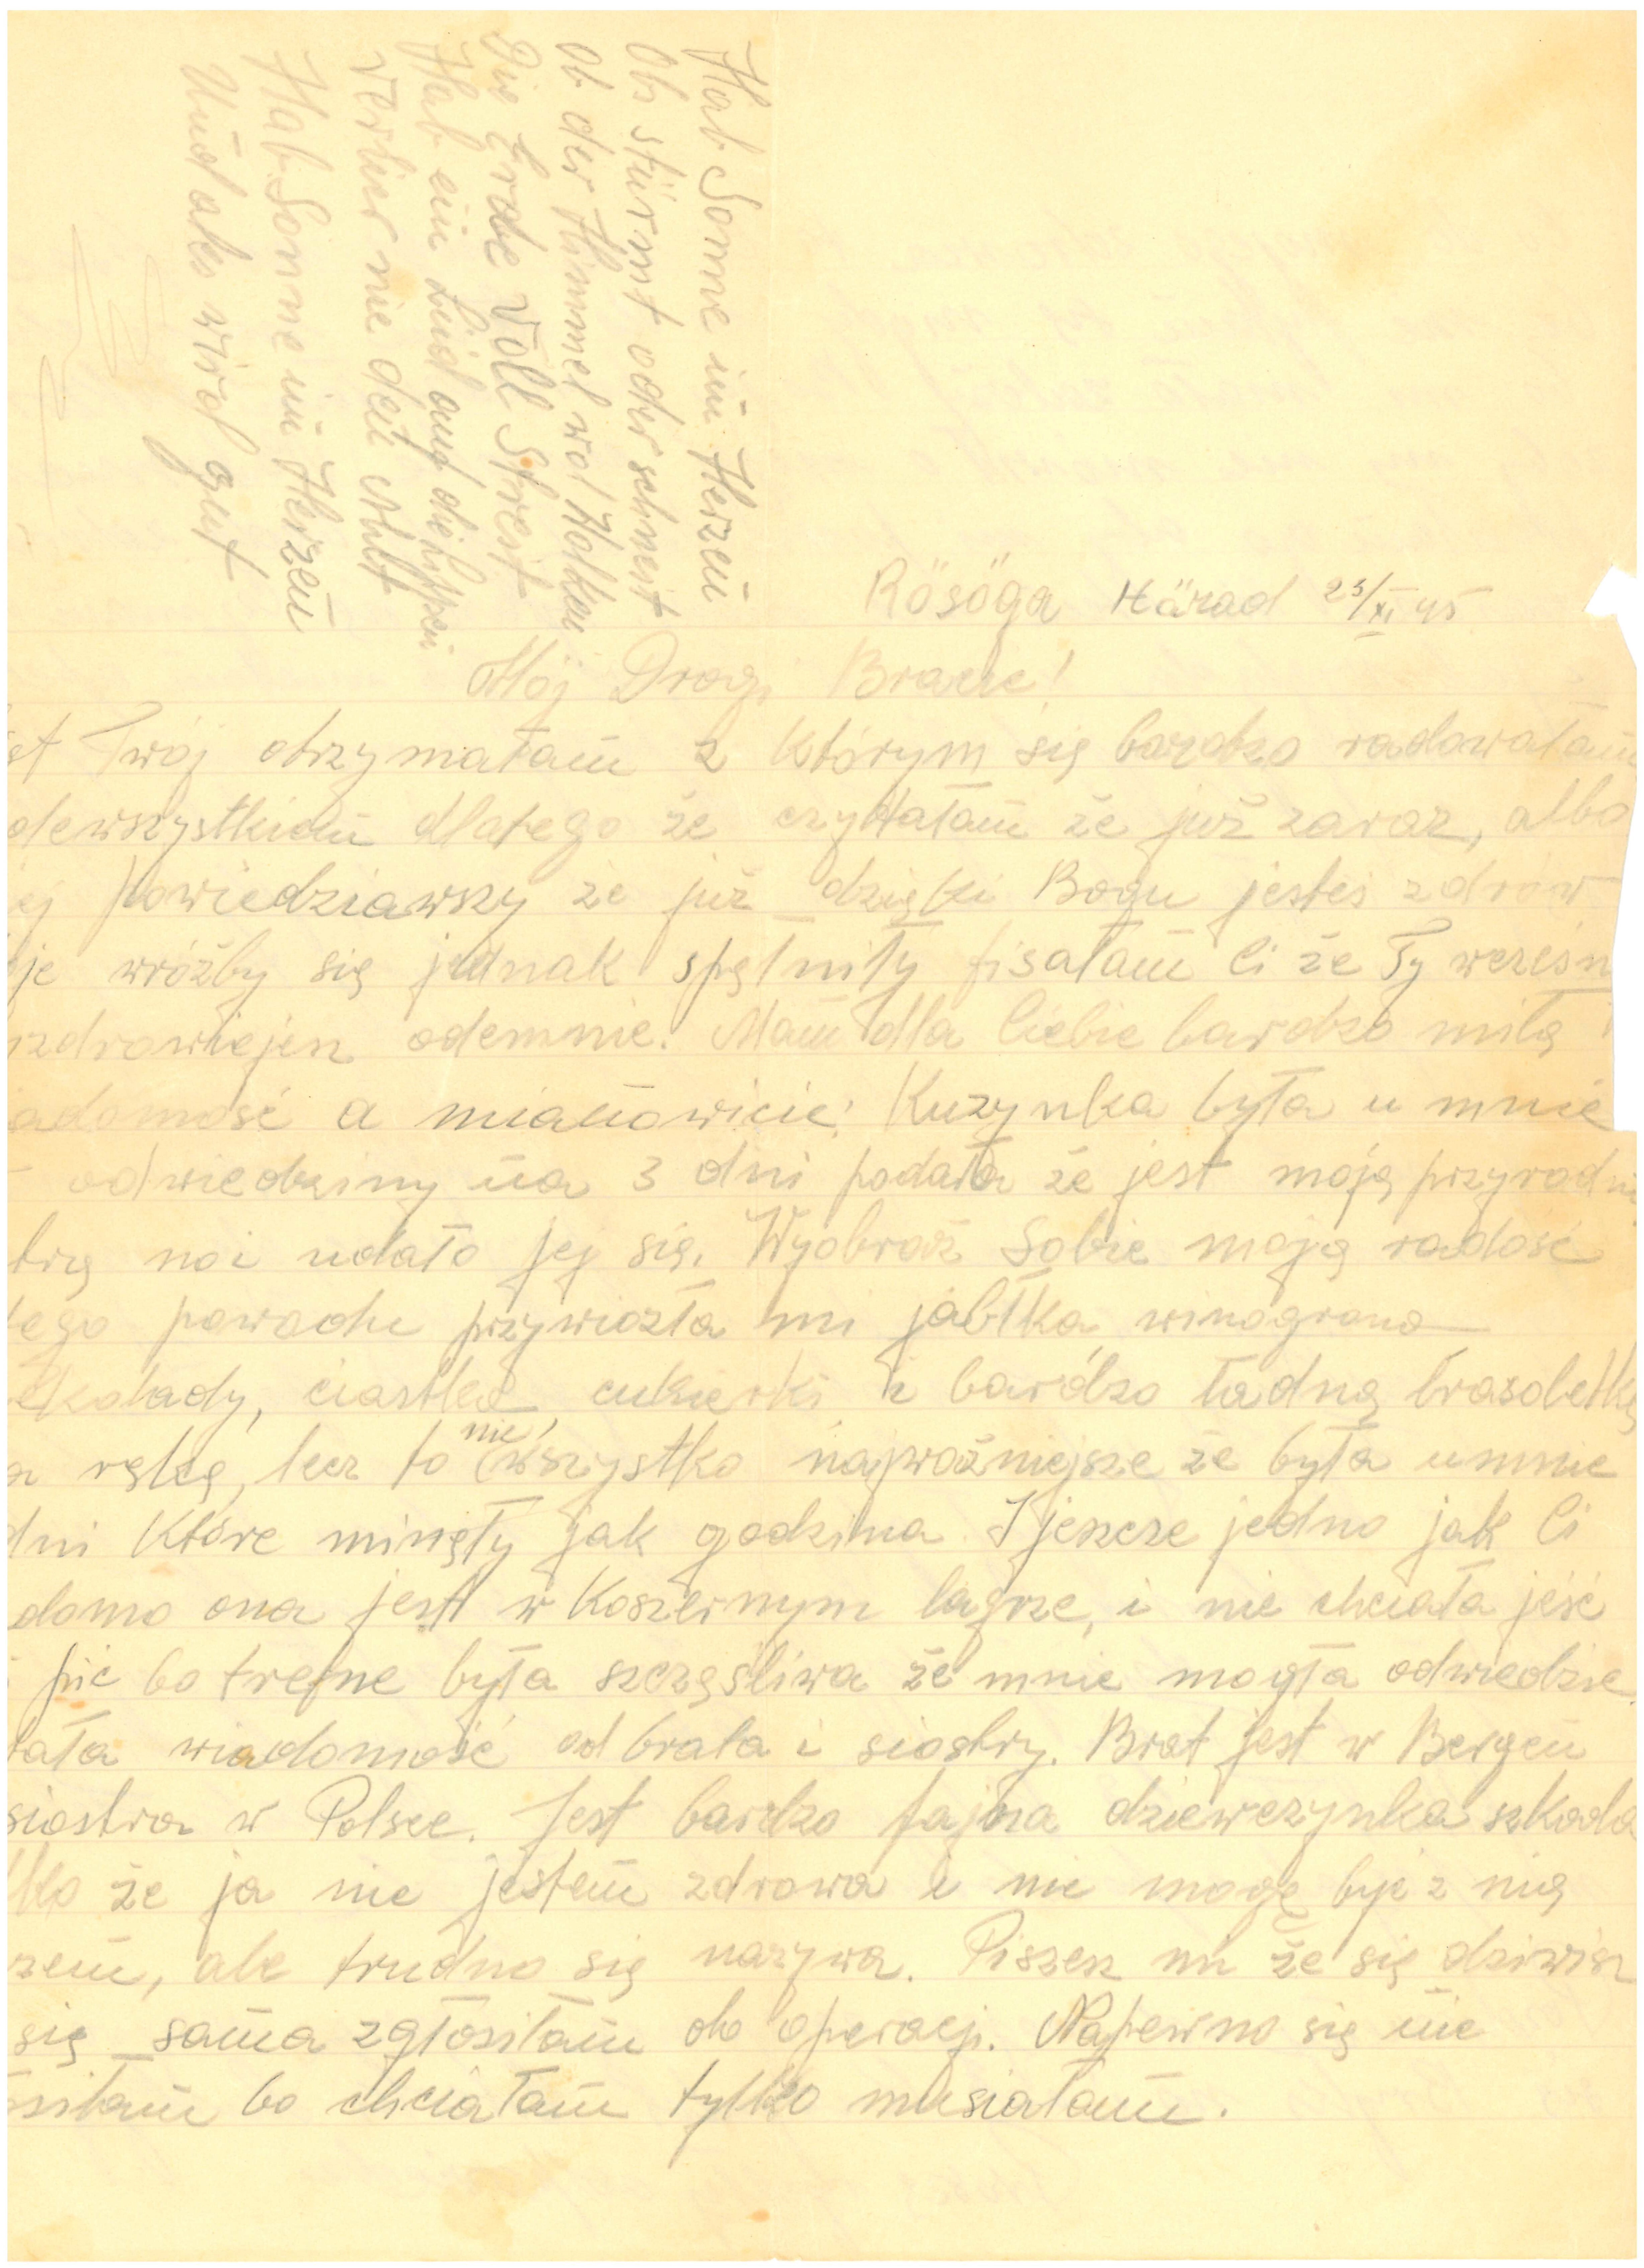 Hab Sonne im Herzen
Ob stürmt oder schneit
Ob der Himmel vol Wolken
Die Erde voll Streit
Hab ein Lied auf die Lippen
Verlier nie den Mut
Hab Sonne im Herzen
Und ales wird gut
Rösöga Härad 23/XI 45
Mój Drogi Bracie!
st Twój otrzymałam z którym się bardzo radowałam
dewszystkiem dlatego że czytałam że już zaraz, albo
ej powiedziawszy że już dzięki Bogu jesteś zdrów
je wróżby się jednak spełniły pisałam Ci że Ty wcześn
zdrowiejesz odemnie. Mam dla Ciebie bardzo miłą
adomość a mianowicie: Kuzynka była u mnie
odwiedziny na 3 dni podała że jest moją przyrodni
trą no i udało jej się. Wyobraź Sobie moją radość
tego powodu przywiozła mi jabłka, winogrona
ekolady, ciastka cukierki i bardzo ładną brasoletkę
a rękę, lecz to nie wszystko najważniejsze że była umnie
dni które minęły jak godzina. I jeszcze jedno jak Ci
domo ona jest w Koszernym lagrze, i nie chciała jeść
pic bo trefne była szczęśliwa że mnie mogła odwiedzic.
tała wiadomość od brata i siostry. Brat jest w Bergen
siostra w Polsce. Jest bardzo fajna dziewczynka szkoda
lko że ja nie jestem zdrowa i nie mogę być z nią
zem, ale trudno się nazywa. Piszesz mi że się dziwisz
się sama zgłosiłam do operacji. Napewno się nie
osiłam bo chciałam tylko musiałam.